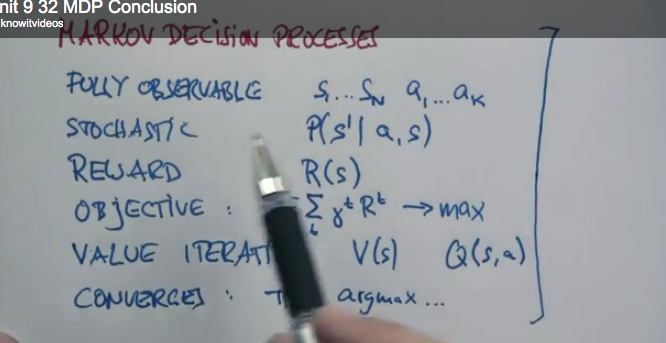 nit 9 32 MDP Conclusion
knowitvideos
MARKOV DECISION PROCESSES
FULLY OBSERVABLE S₁...S_N a₁...a_K
STOCHASTIC P(s'| a,s)
REWARD R(s)
OBJECTIVE : Σ_t γ^t R^t → max
VALUE ITERATI V(s) Q(s,a)
CONVERGES : argmax ...